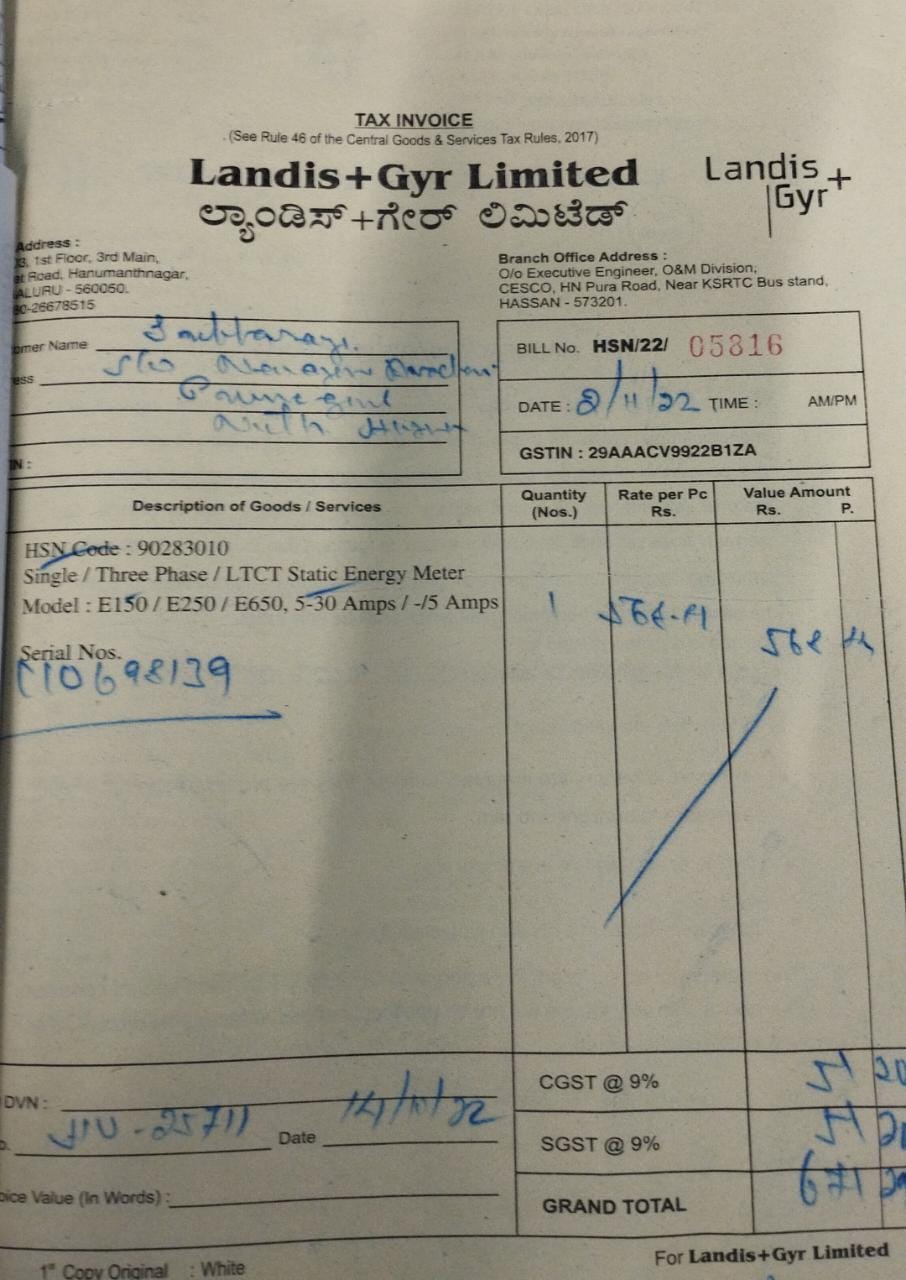 TAX INVOICE
(See Rule 46 of the Central Goods & Services Tax Rules, 2017)
Landis+Gyr Limited
ಲ್ಯಾಂಡಿಸ್+ಗೇರ್ ಲಿಮಿಟೆಡ್
Landis+
Gyr
Address :
1st Floor, 3rd Main,
Road, Hanumanthnagar,
ALURU - 560050.
26678515
Branch Office Address :
O/o Executive Engineer, O&M Division,
CESCO, HN Pura Road, Near KSRTC Bus stand,
HASSAN - 573201.
omer Name
ess S/o
IN :
BILL No. HSN/22/ 05316
DATE : 2/11/22 TIME : AM/PM
GSTIN : 29AAACV9922B1ZA
Description of Goods / Services
Quantity
(Nos.)
Rate per Pc
Rs.
Value Amount
Rs. P.
HSN Code : 90283010
Single / Three Phase / LTCT Static Energy Meter
Model : E150 / E250 / E650, 5-30 Amps / -/5 Amps 1
Serial Nos. 568
10698139
CGST @ 9% 51 20
DVN :
25711 Date 14/11/22
SGST @ 9% 51
oice Value (In Words) :
GRAND TOTAL 671
For Landis+Gyr Limited
1st Copy Original : White